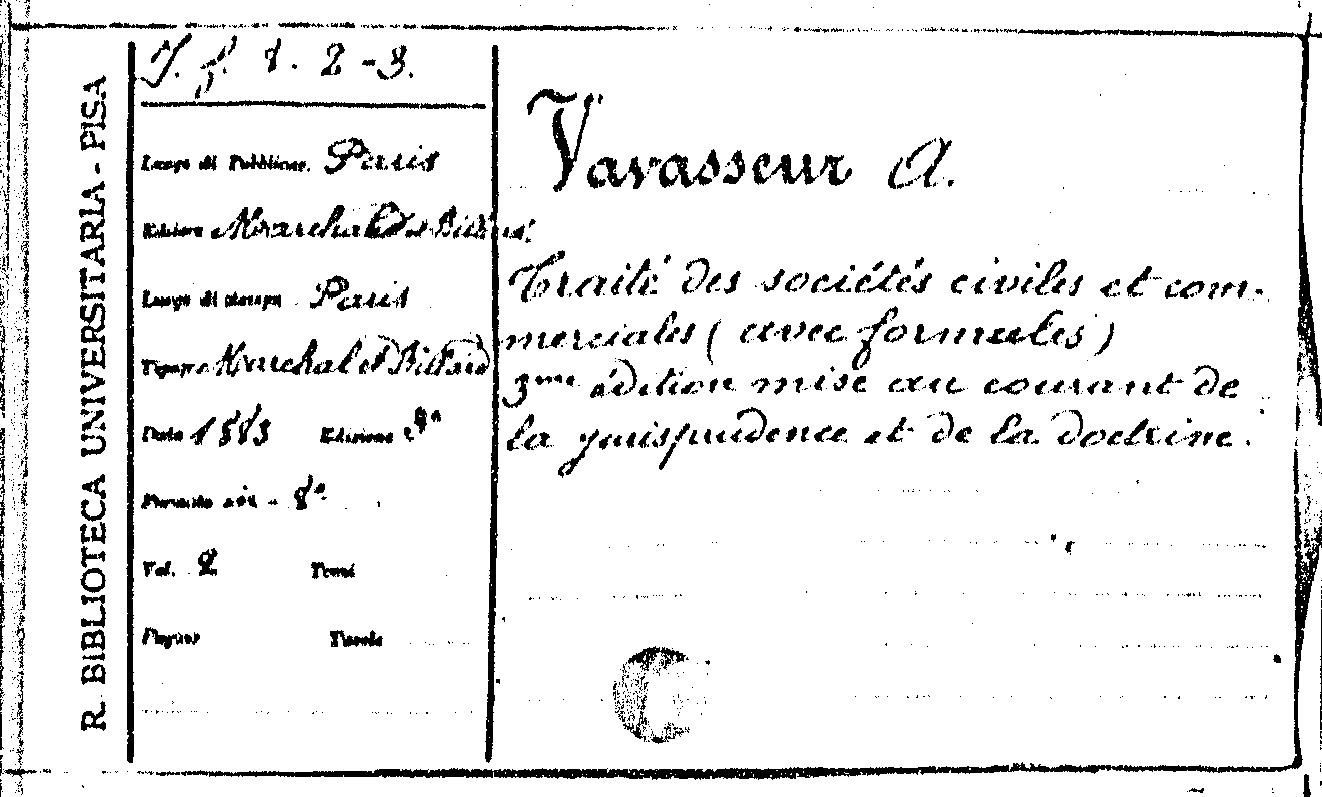 R. BIBLIOTECA UNIVERSITARIA - PISA
f. 1. 2-3.
Luogo di Pubblicaz. Paris
Editore Marchal et Billard
Luogo di stampa Paris
Tipogr. Marchal et Billard
Data 1883 Edizione 3ª
Formato 8º
Vol. 2 Tomi
Pagine Tavole
Vavasseur A.
Traité des sociétés civiles et com-
merciales (avec formules)
3me édition mise au courant de
la jurisprudence et de la doctrine.